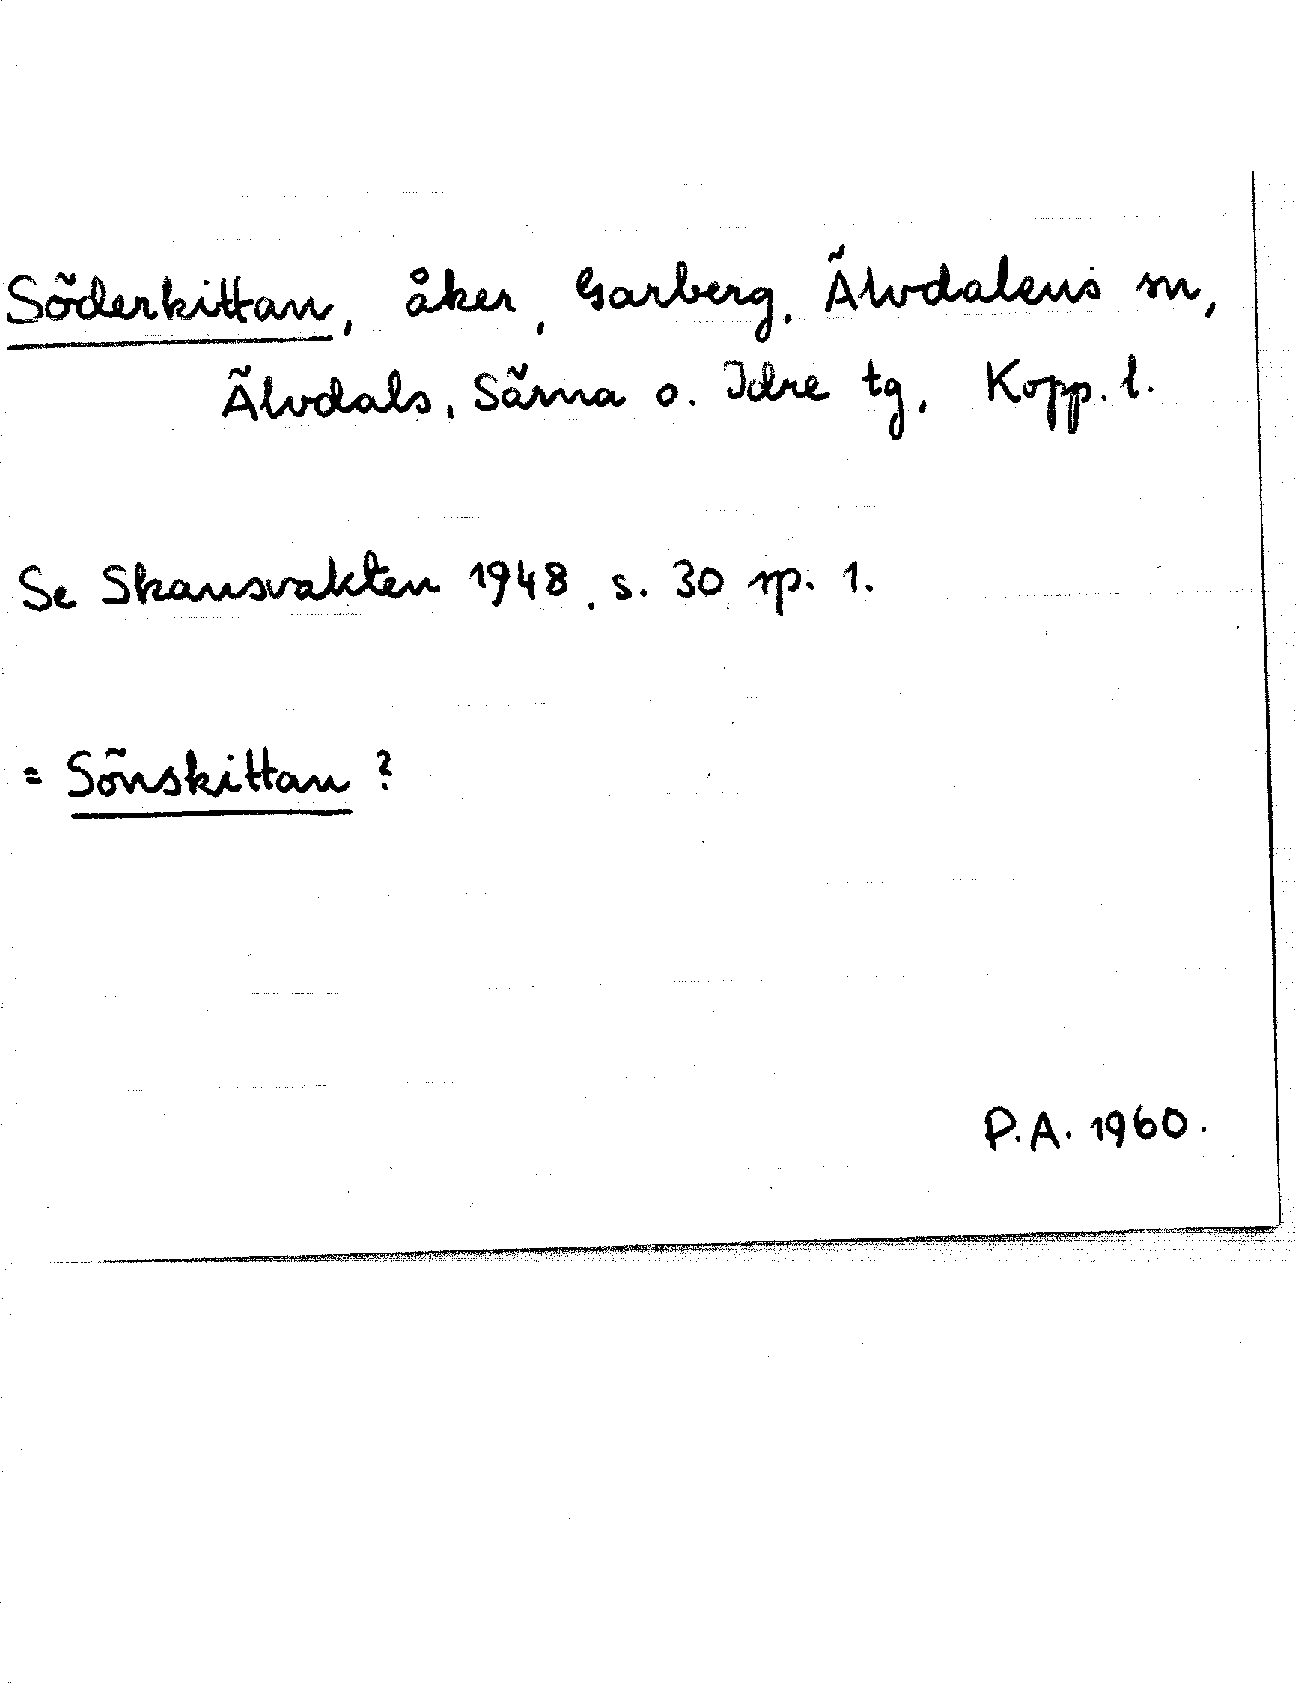 Söderkittan, åker, Garberg, Älvdalens sn,
Älvdals, Särna o. Idre tg, Kopp. l.
Se Skansvakten 1948, s. 30 sp. 1.
= Sönskittan ?
P.A. 1960.